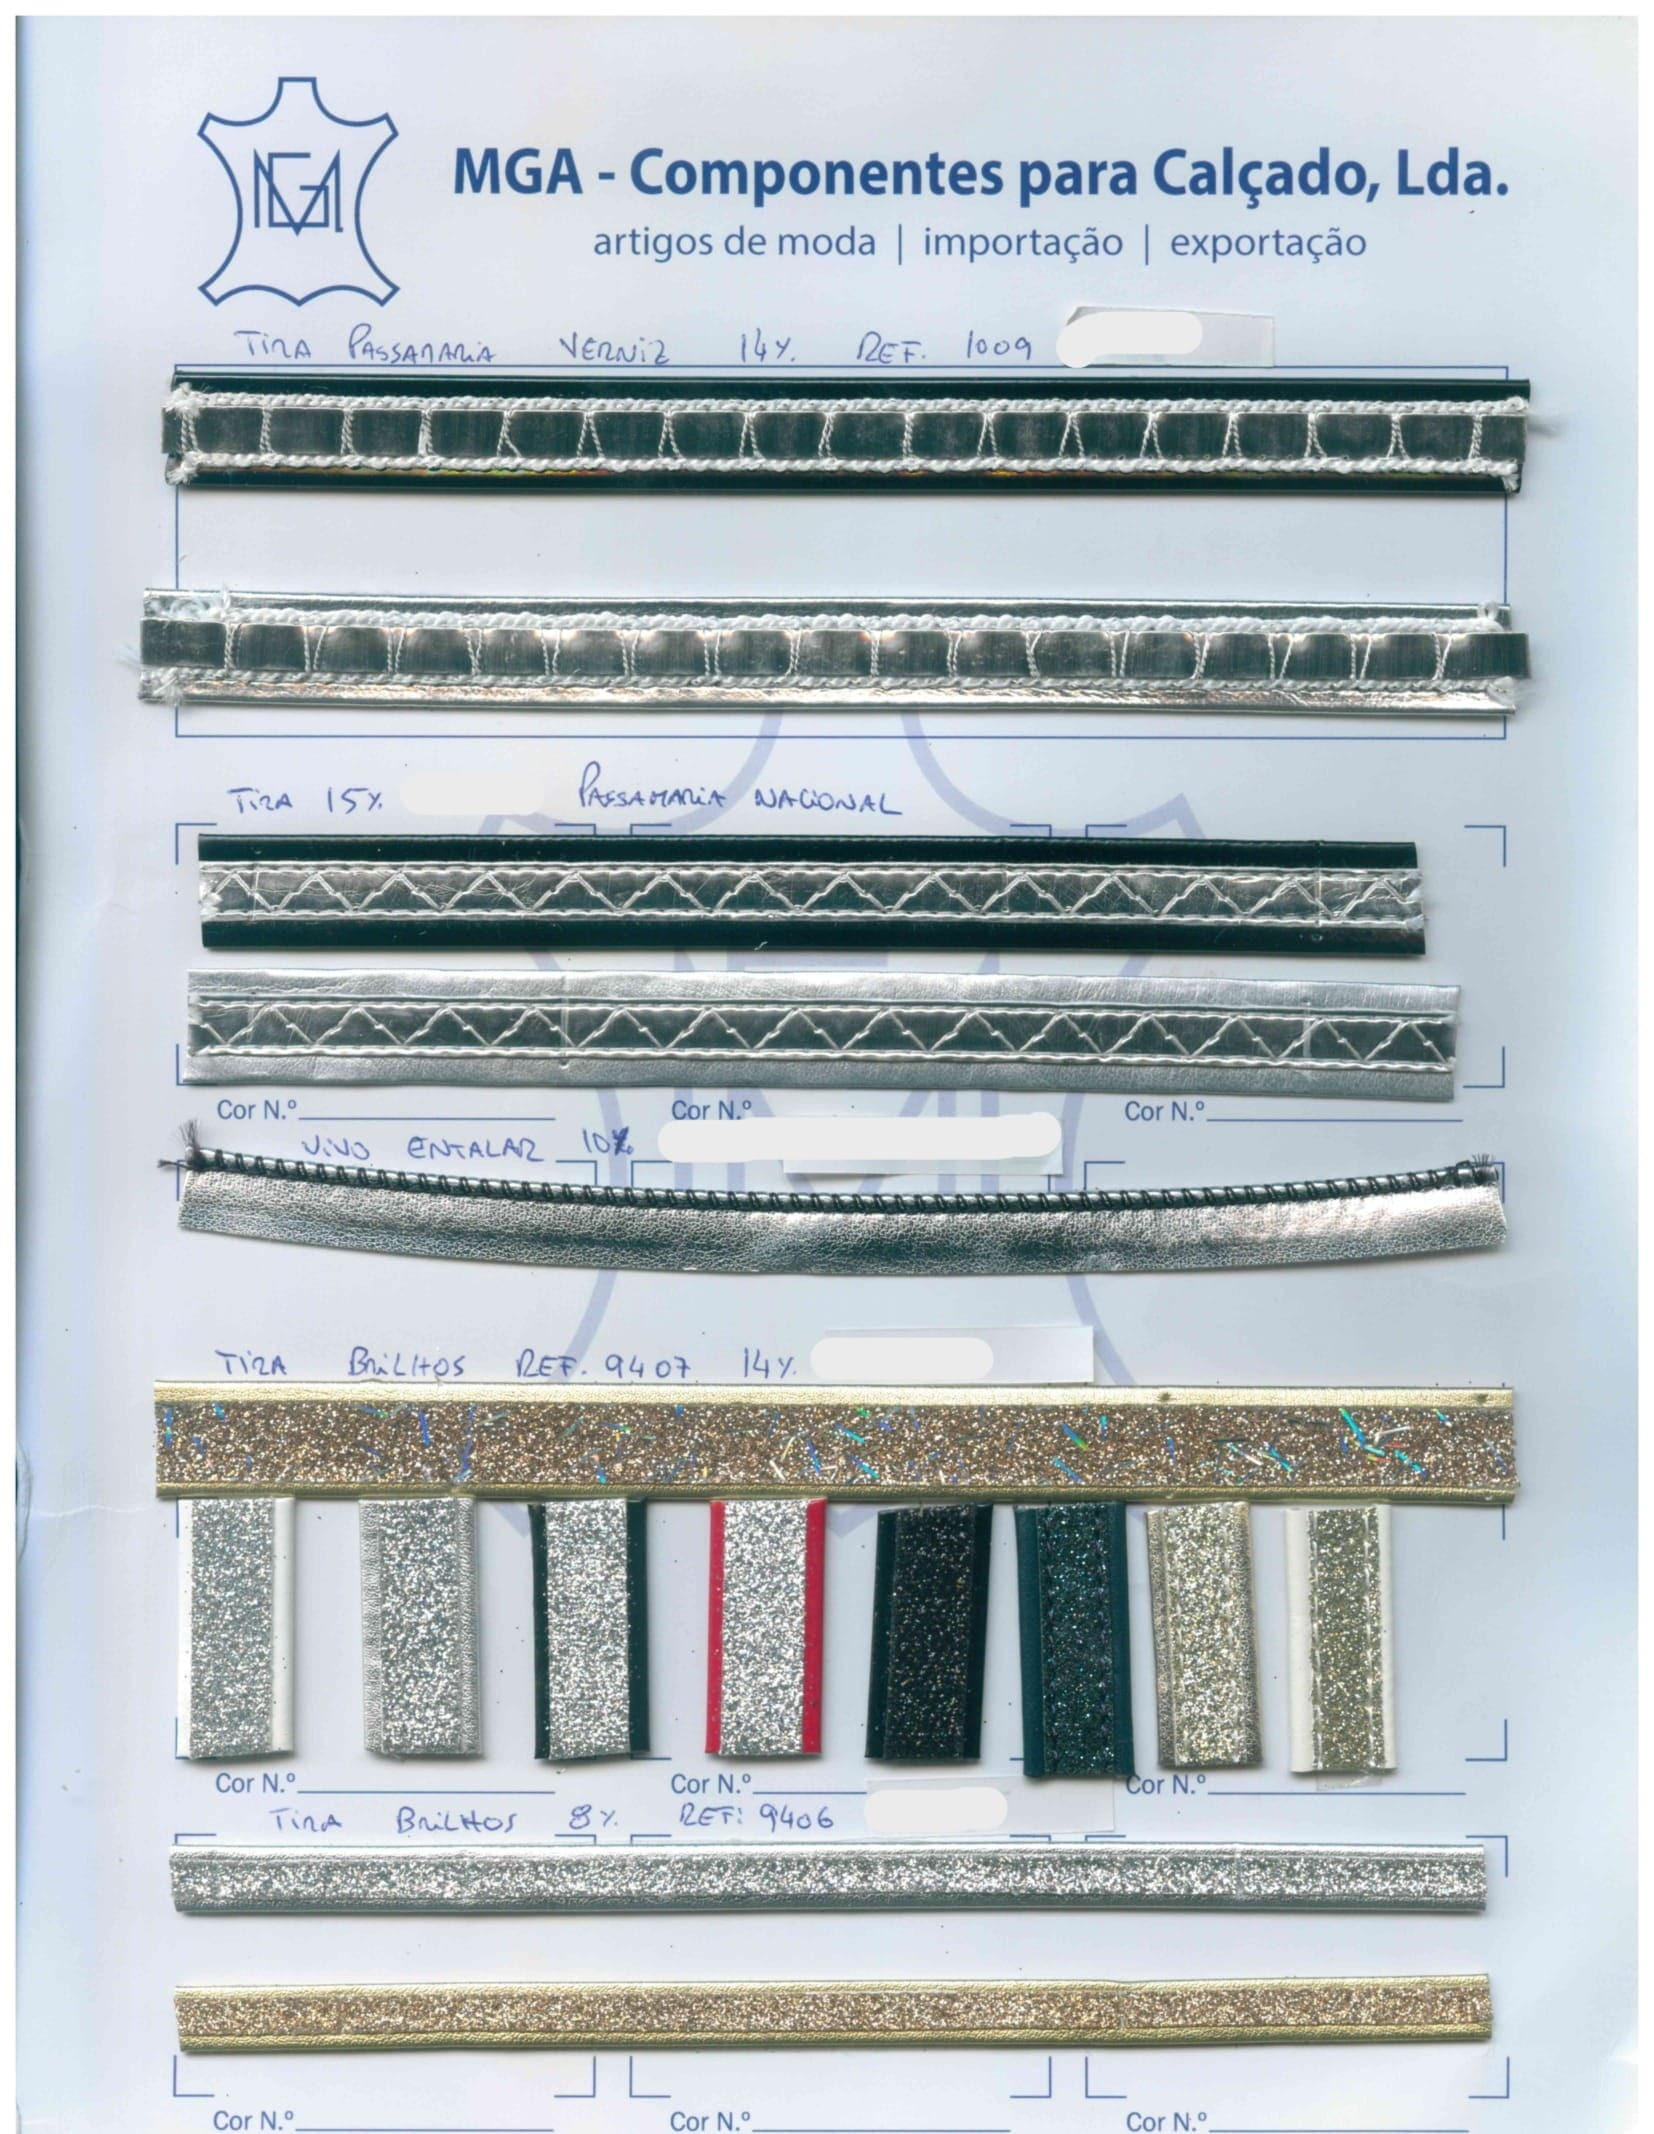 MGA
MGA - Componentes para Calçado, Lda.
artigos de moda | importação | exportação
TIRA PASSAMARIA VERNIZ 14%. REF. 1009
TIRA 15%. PASSAMARIA NACIONAL
Cor N.º Cor N.º Cor N.º
VIVO ENTALAR 10%
TIRA BRILHOS REF. 9407 14%.
Cor N.º Cor N.º Cor N.º
TIRA BRILHOS 8%. REF: 9406
Cor N.º Cor N.º Cor N.º